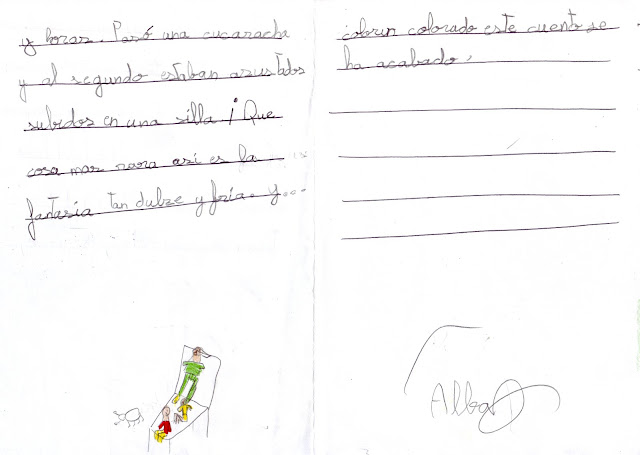 y horas. Pasó una cucaracha
y al segundo estaban asustados
subidos en una silla ¡Que
cosa mas rara asi es la
fantasia tan dulze y fria. y...
colorin colorado este cuento se
ha acabado.
Alba